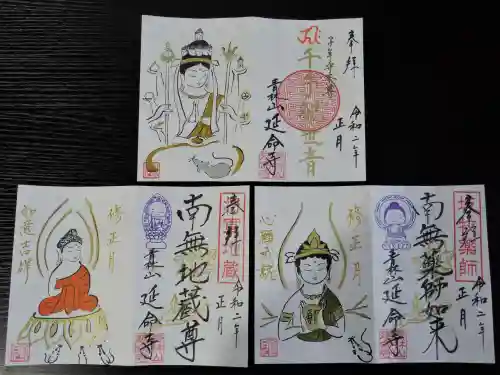 奉拝
令和二年
正月
千手観世音
青林山 延命寺
奉拝
令和二年
正月
南無地蔵尊
青林山 延命寺
修正月
如意吉祥
奉拝
令和二年
正月
南無薬師如来
青林山 延命寺
修正月
心願成就